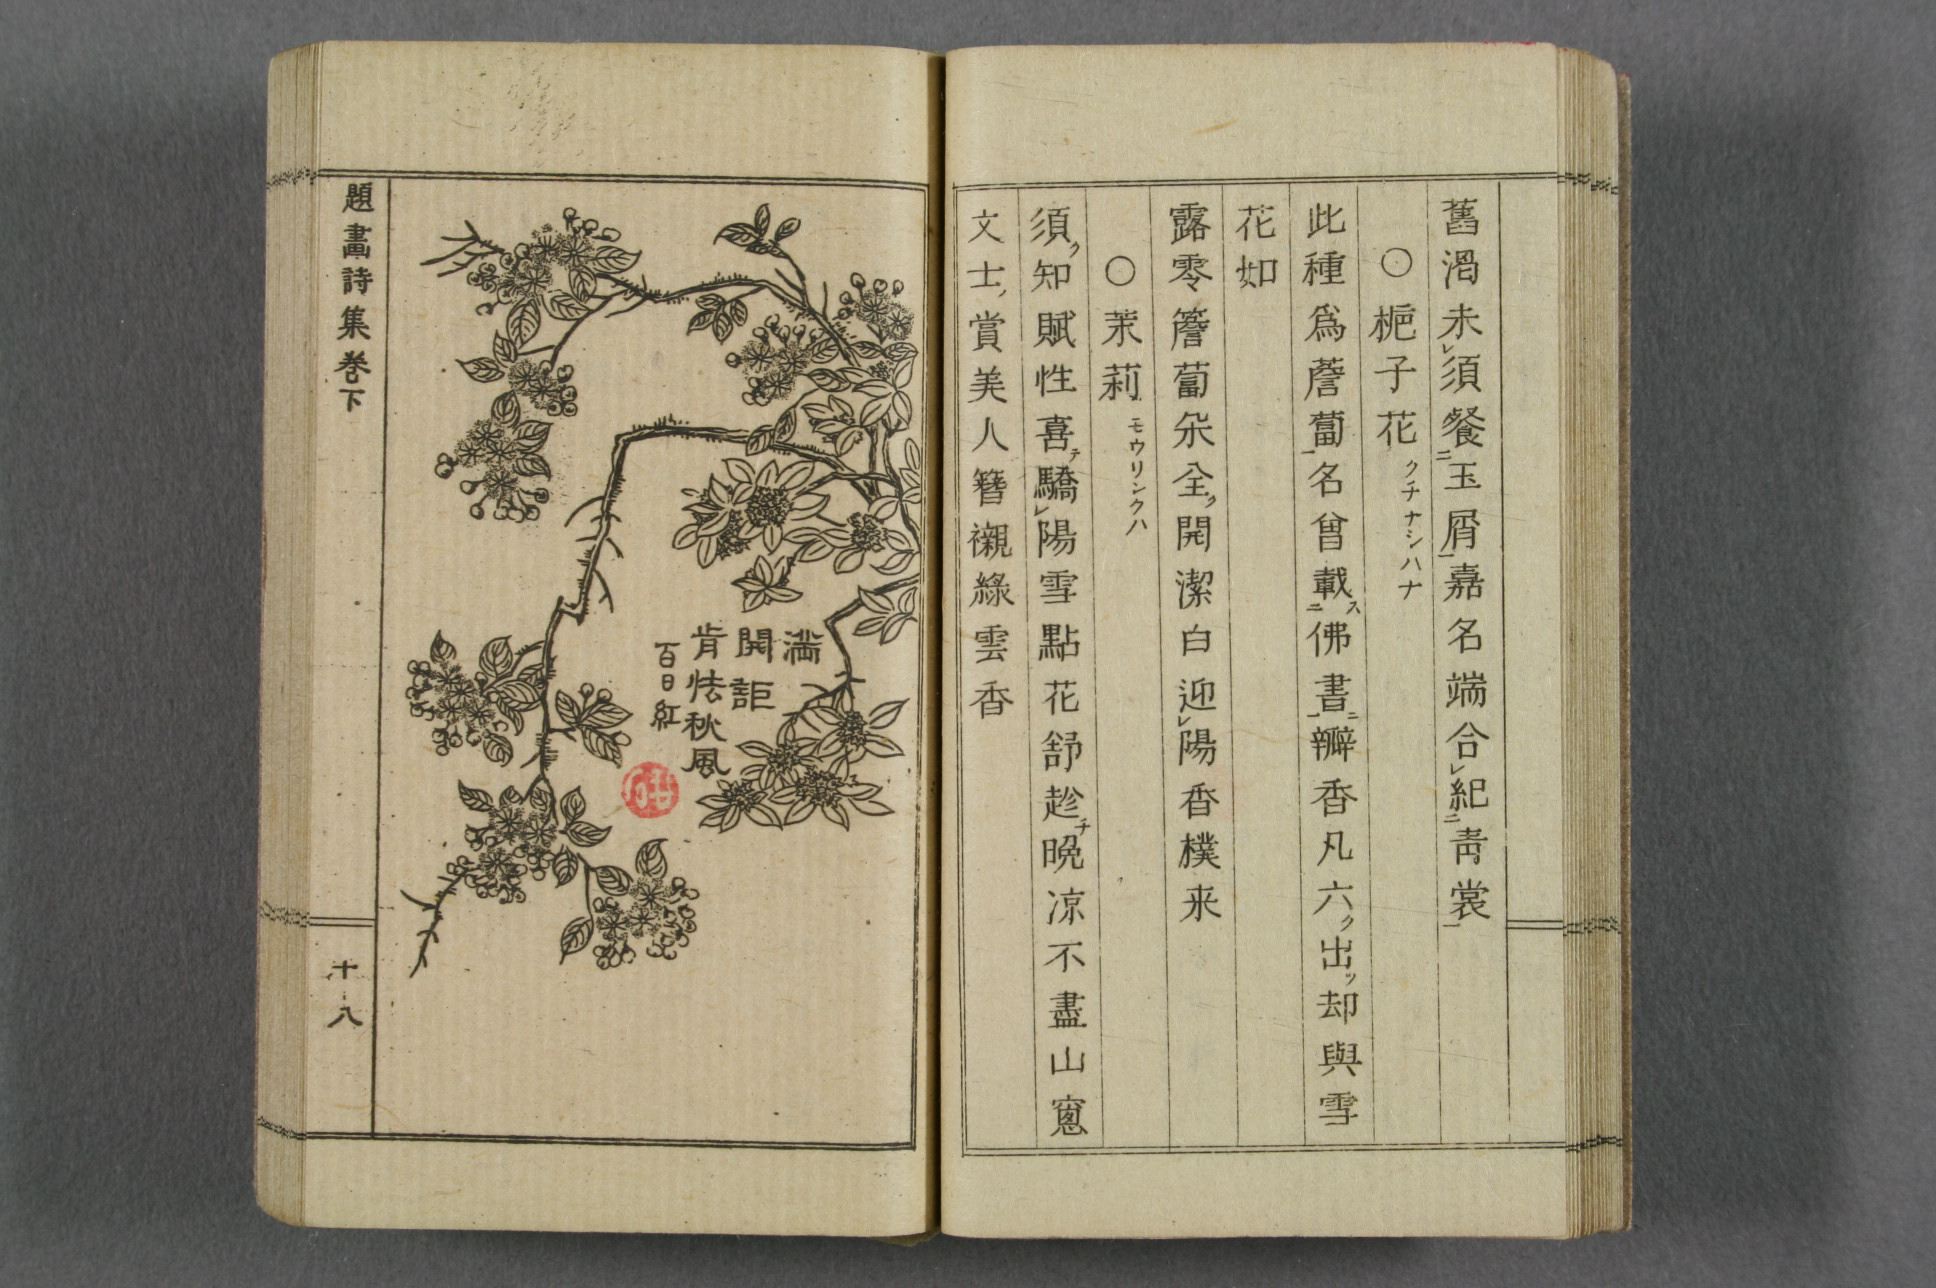 舊渴未レ須餐ニ玉屑一嘉名端合レ紀ニ靑裳一
○梔子花 クチナシハナ
此種爲薝蔔一名曾載スニ佛書ニ一瓣香凡六ク出ッ却與雪
花如
露零簷蔔朵全ク開潔白迎レ陽香樸来
○茉莉 モウリンクハ
須ク知賦性喜テ驕レ陽雪點花舒趁チ晩凉不盡山窻
文士賞美人簪襯綠雲香
滿
開詎
肯怯秋風
百日紅
題畫詩集卷下
十八